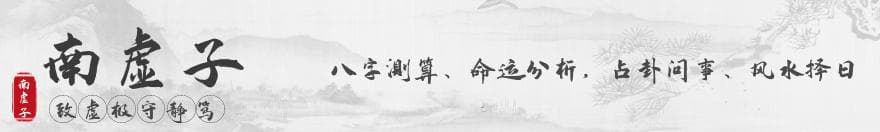 南虚子
南虚子
致虚极守静笃
八字测算、命运分析，占卦问事、风水择日